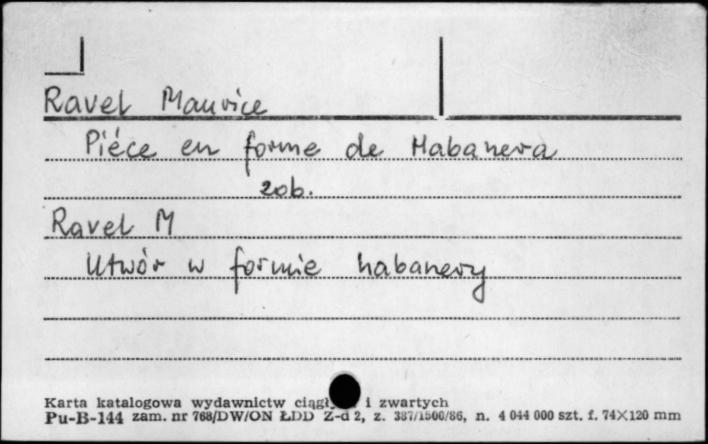 Ravel Maurice
Piéce en forme de Habanera
zob.
Ravel M
Utwór w formie habanery
Karta katalogowa wydawnictw i zwartych
Pu-B-144 zam. nr 768/DW/ON ŁDD Z-d 2, z. 387/1500/86, n. 4 044 000 szt. f. 74×120 mm